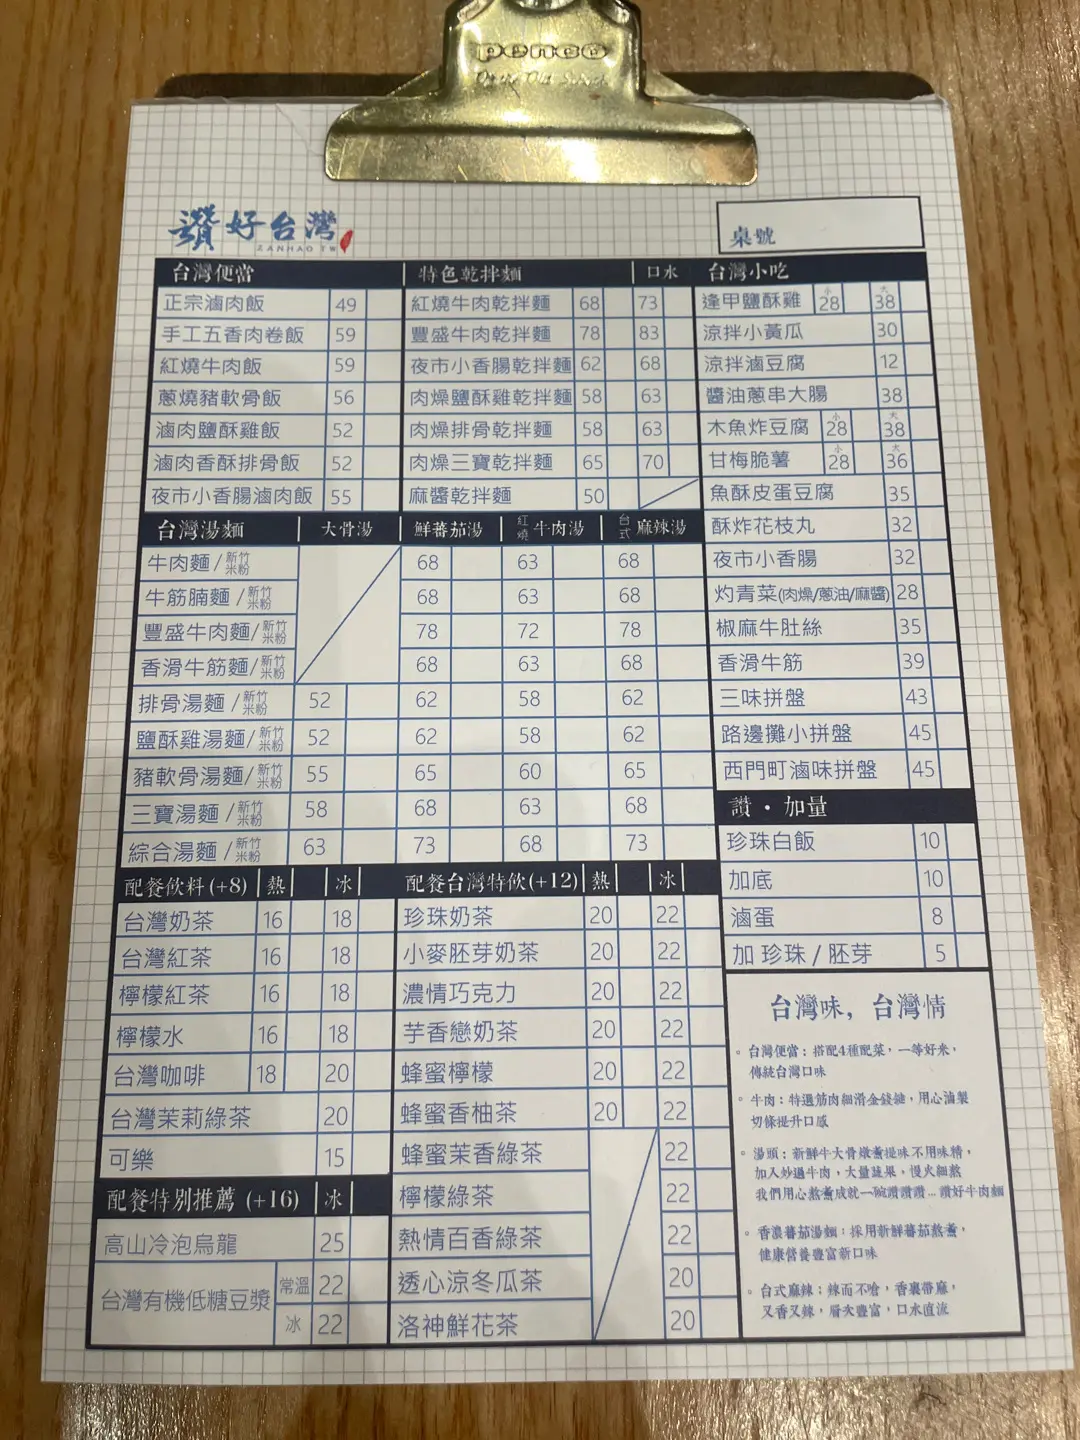 penco
讚好台灣
ZANHAO TW
桌號
台灣便當
正宗滷肉飯 49
手工五香肉卷飯 59
紅燒牛肉飯 59
蔥燒豬軟骨飯 56
滷肉鹽酥雞飯 52
滷肉香酥排骨飯 52
夜市小香腸滷肉飯 55
特色乾拌麵 口水
紅燒牛肉乾拌麵 68 73
豐盛牛肉乾拌麵 78 83
夜市小香腸乾拌麵 62 68
肉燥鹽酥雞乾拌麵 58 63
肉燥排骨乾拌麵 58 63
肉燥三寶乾拌麵 65 70
麻醬乾拌麵 50
台灣小吃
逢甲鹽酥雞 小 28 大 38
涼拌小黃瓜 30
涼拌滷豆腐 12
醬油蔥串大腸 38
木魚炸豆腐 小 28 大 38
甘梅脆薯 小 28 大 36
魚酥皮蛋豆腐 35
酥炸花枝丸 32
夜市小香腸 32
灼青菜(肉燥/蔥油/麻醬) 28
椒麻牛肚絲 35
香滑牛筋 39
三味拼盤 43
路邊攤小拼盤 45
西門町滷味拼盤 45
台灣湯麵 大骨湯 鮮蕃茄湯 紅燒牛肉湯 台式麻辣湯
牛肉麵/新竹米粉 68 63 68
牛筋腩麵/新竹米粉 68 63 68
豐盛牛肉麵/新竹米粉 78 72 78
香滑牛筋麵/新竹米粉 68 63 68
排骨湯麵/新竹米粉 52 62 58 62
鹽酥雞湯麵/新竹米粉 52 62 58 62
豬軟骨湯麵/新竹米粉 55 65 60 65
三寶湯麵/新竹米粉 58 68 63 68
綜合湯麵/新竹米粉 63 73 68 73
讚・加量
珍珠白飯 10
加底 10
滷蛋 8
加 珍珠 / 胚芽 5
配餐飲料 (+8) 熱 冰
台灣奶茶 16 18
台灣紅茶 16 18
檸檬紅茶 16 18
檸檬水 16 18
台灣咖啡 18 20
台灣茉莉綠茶 20
可樂 15
配餐特別推薦 (+16) 冰
高山冷泡烏龍 25
台灣有機低糖豆漿 常溫 22
冰 22
配餐台灣特飲(+12) 熱 冰
珍珠奶茶 20 22
小麥胚芽奶茶 20 22
濃情巧克力 20 22
芋香戀奶茶 20 22
蜂蜜檸檬 20 22
蜂蜜香柚茶 20 22
蜂蜜茉香綠茶 22
檸檬綠茶 22
熱情百香綠茶 22
透心涼冬瓜茶 20
洛神鮮花茶 20
台灣味，台灣情
。台灣便當：搭配4種配菜，一等好米，
傳統台灣口味
。牛肉：特選筋肉細滑金錢𦟌，用心滷製
切條提升口感
。湯頭：新鮮牛大骨燉煮提味不用味精，
加入炒過牛肉，大量蔬果，慢火細熬
我們用心熬煮成就一碗讚讚讚...讚好牛肉麵
。香濃蕃茄湯麵：採用新鮮蕃茄熬煮，
健康營養豐富新口味
。台式麻辣：辣而不嗆，香裏帶麻，
又香又辣，層次豐富，口水直流